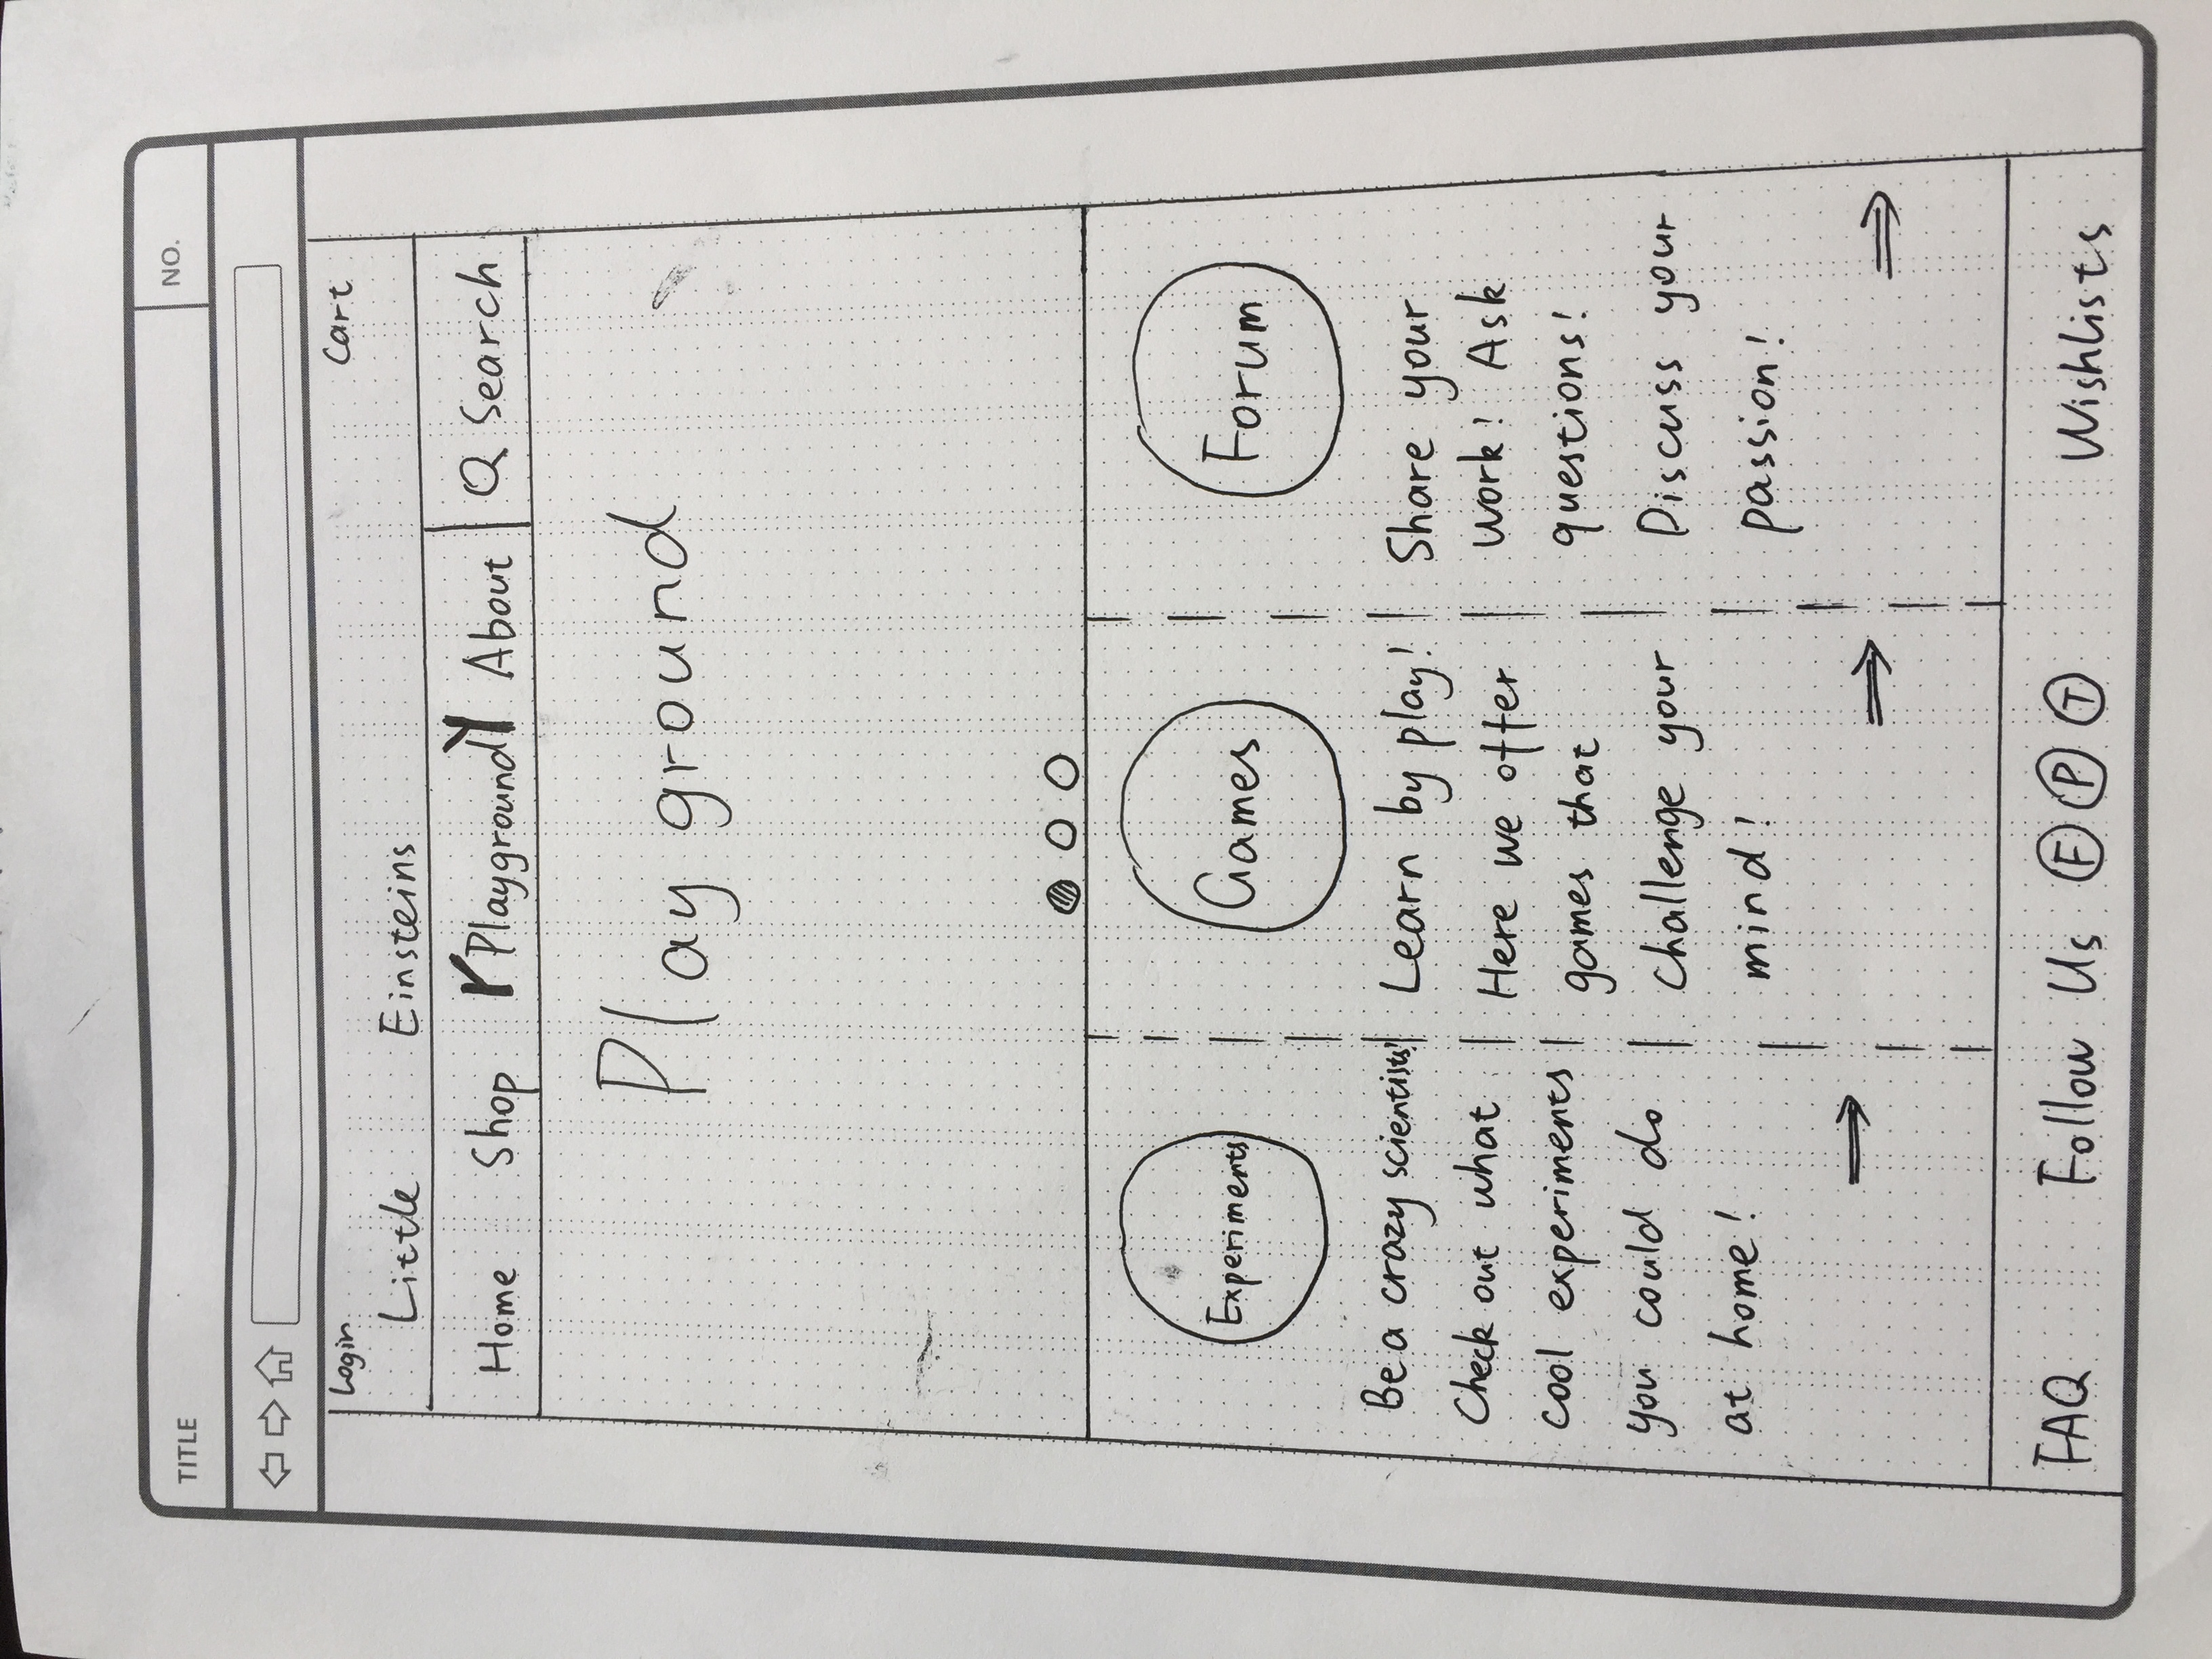 TITLE NO.
Login Cart
Little Einsteins
Home Shop Playground About Search
Play ground
Experiments
Be a crazy scientists!
Check out what
cool experiments
you could do
at home!
Games
Learn by play!
Here we offer
games that
challenge your
mind!
Forum
Share your
work! Ask
questions!
Discuss your
passion!
FAQ Follow Us F P T Wishlists